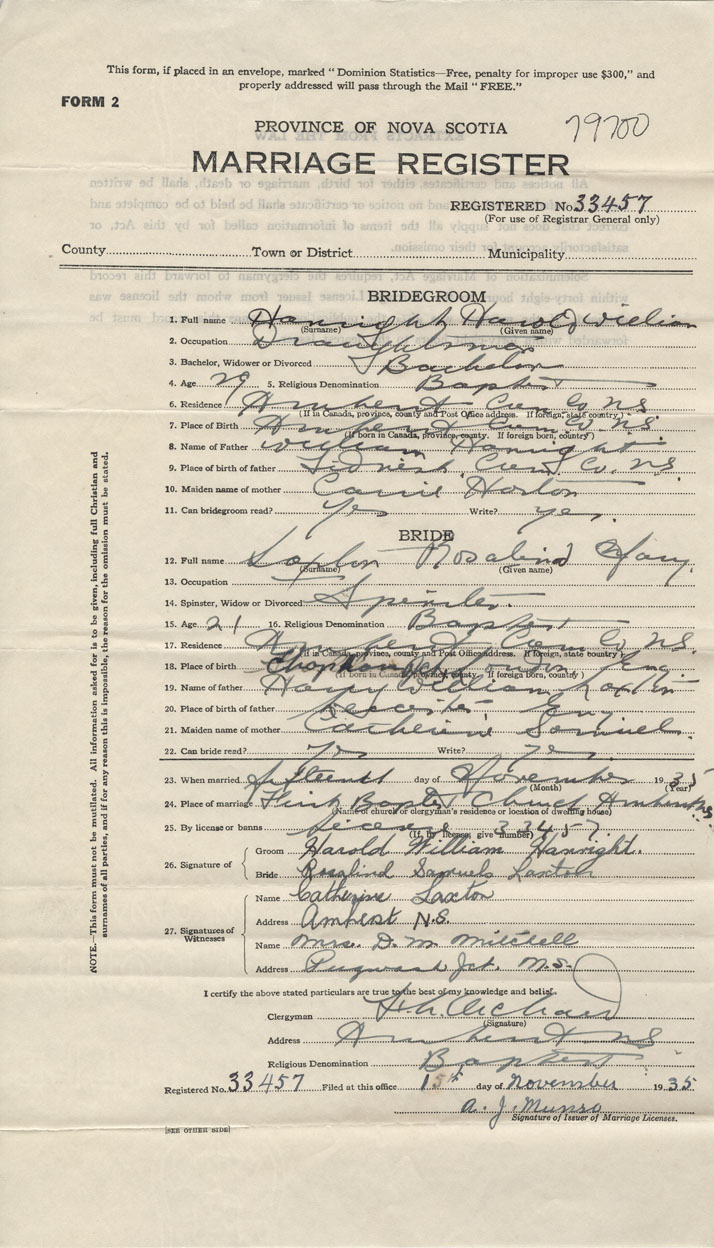 This form, if placed in an envelope, marked "Dominion Statistics—Free, penalty for improper use $300," and
properly addressed will pass through the Mail "FREE."
FORM 2
PROVINCE OF NOVA SCOTIA
79700
MARRIAGE REGISTER
REGISTERED No. 33457
(For use of Registrar General only)
County Town or District Municipality
BRIDEGROOM
1. Full name Hanright Harold William
(Surname) (Given name)
2. Occupation Draughtsman
3. Bachelor, Widower or Divorced Bachelor
4. Age 29 5. Religious Denomination Baptist
6. Residence Amherst Cum. Co. N.S.
(If in Canada, province, county and Post Office address. If foreign, state country)
7. Place of Birth Amherst Cum. Co. N.S.
(If born in Canada, province, county. If foreign born, country)
8. Name of Father William Hanright
9. Place of birth of father Tidnish, Cum. Co. N.S.
10. Maiden name of mother Carrie Horton
11. Can bridegroom read? Yes Write? Yes.
BRIDE
12. Full name Laxton Rosalind
(Surname) (Given name)
13. Occupation
14. Spinster, Widow or Divorced Spinster.
15. Age 21 16. Religious Denomination Baptist
17. Residence Amherst Cum Co N.S.
(If in Canada, province, county and Post Office address. If foreign, state country)
18. Place of birth London Eng.
(If born in Canada, province, county. If foreign born, country)
19. Name of father Harry William Laxton
20. Place of birth of father Leicester, Eng
21. Maiden name of mother Catherine Samuel.
22. Can bride read? Yes Write? Yes
23. When married fifteenth day of November 1935
(Month) (Year)
24. Place of marriage First Baptist Church Amherst N.S.
(Name of church or clergyman's residence or location of dwelling house)
25. By license or banns License 33457.
(If by license, give number)
26. Signature of
Groom Harold William Hanright.
Bride Rosalind Samuels Laxton
27. Signatures of Witnesses
Name Catherine Laxton
Address Amherst N.S.
Name Mrs. D. M. Mitchell
Address Pugwash Jct. N.S.
I certify the above stated particulars are true to the best of my knowledge and belief.
Clergyman
(Signature)
Address Amherst N.S.
Religious Denomination Baptist
Registered No. 33457 Filed at this office 15th day of November 1935
A. J. Munro
Signature of Issuer of Marriage Licenses.
[SEE OTHER SIDE]
NOTE.—This form must not be mutilated. All information asked for is to be given, including full Christian and
surnames of all parties, and if for any reason this is impossible, the reason for the omission must be stated.